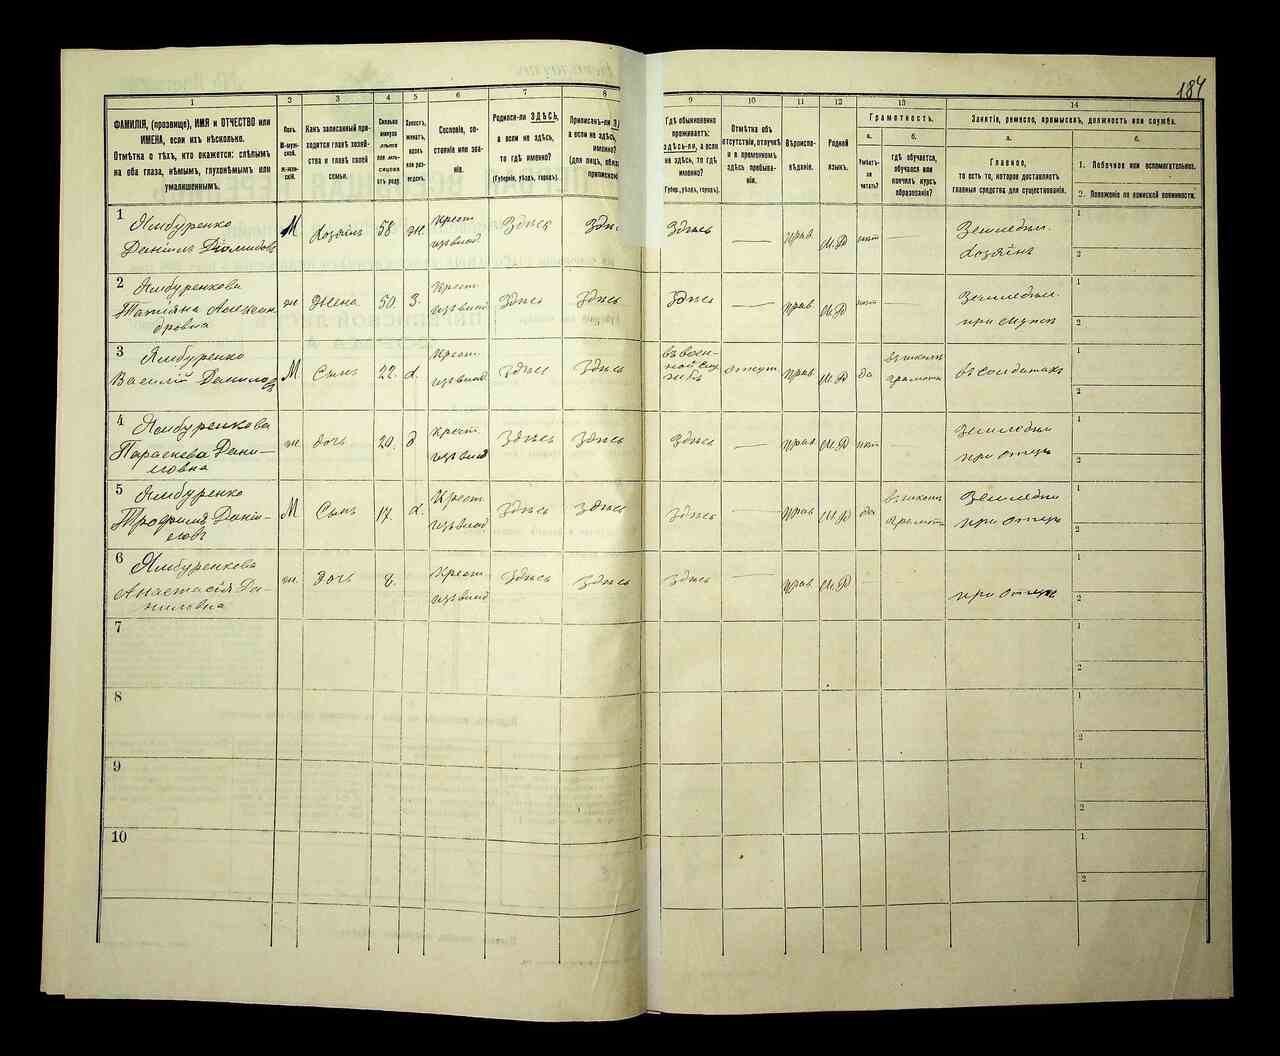 184
1
2
3
4
5
6
7
8
9
10
11
12
13
14
ФАМИЛІЯ, (прозвище), ИМЯ и ОТЧЕСТВО или
ИМЕНА, если ихъ нѣсколько.
Отмѣтка о тѣхъ, кто окажется: слѣпымъ
на оба глаза, нѣмымъ, глухонѣмымъ или
умалишеннымъ.
Полъ.
М-муж-
ской.
Ж-жен-
скій.
Какъ записанный при-
ходится главѣ хозяй-
ства и главѣ своей
семьи.
Сколько
минуло
лѣтъ
или мѣ-
сяцевъ
отъ роду.
Холостъ,
женатъ,
вдовъ
или раз-
веденъ.
Сословіе, со-
стояніе или зва-
ніе.
Родился-ли ЗДѢСЬ,
а если не здѣсь,
то гдѣ именно?
(Губернія, уѣздъ, городъ).
Приписанъ-ли
а если не здѣсь,
именно?
(для лицъ,
Гдѣ обыкновенно
проживаетъ:
здѣсь-ли, а если
не здѣсь, то гдѣ
именно?
(Губерн., уѣздъ, городъ).
Отмѣтка объ
отсутствіи, отлучкѣ
и о временномъ
здѣсь пребыва-
ніи.
Вѣроиспо-
вѣданіе.
Родной
языкъ.
Грамотность.
а.
Умѣетъ-
ли
читать?
б.
гдѣ обучается,
обучался или
кончилъ курсъ
образованія?
Занятіе, ремесло, промыселъ, должность или служба.
а.
Главное,
то есть то, которое доставляетъ
главныя средства для существованія.
б.
1. Побочное или вспомогательное.
2. Положеніе по воинской повинности.
1 Ямбуренко
Данііль Діомидовъ
М Хозяинъ 58 ж. Крест. изъ влад Здѣсь Здѣсь Здѣсь — прав. М.Р нѣт Земледѣл. Хозяинъ
1
2
2 Ямбуренкова
Татіяна Алексан
дровна
ж Жена 50 З. Крест. изъ влад Здѣсь Здѣсь Здѣсь — Прав М.Р нѣт Земледѣл. при мужѣ
1
2
3 Ямбуренко
Василій Данилов
М Сынъ 22. х. Крест. изъ влад Здѣсь Здѣсь въ воен-
ной слу
жбѣ отсут прав М.Р да въ школѣ грамоти въ солдатахъ
1
2
4 Ямбуренкова
Параскева Дани-
ловна
ж дочь 20. д Крест. изъ влад Здѣсь Здѣсь Здѣсь — прав М.Р нѣт Земледѣл при отцѣ
1
2
5 Ямбуренко
Трофимъ Данii-
лов
М Сынъ 17. х. Крест изъ влад Здѣсь Здѣсь Здѣсь — прав М.Р да въ школѣ грамоти Земледѣл при отцѣ
1
2
6 Ямбуренкова
Анастасія Да-
ниловна
ж. дочь 8. Крест изъ влад Здѣсь Здѣсь Здѣсь — прав М.Р при отцѣ
1
2
7
1
2
8
1
2
9
1
2
10
1
2